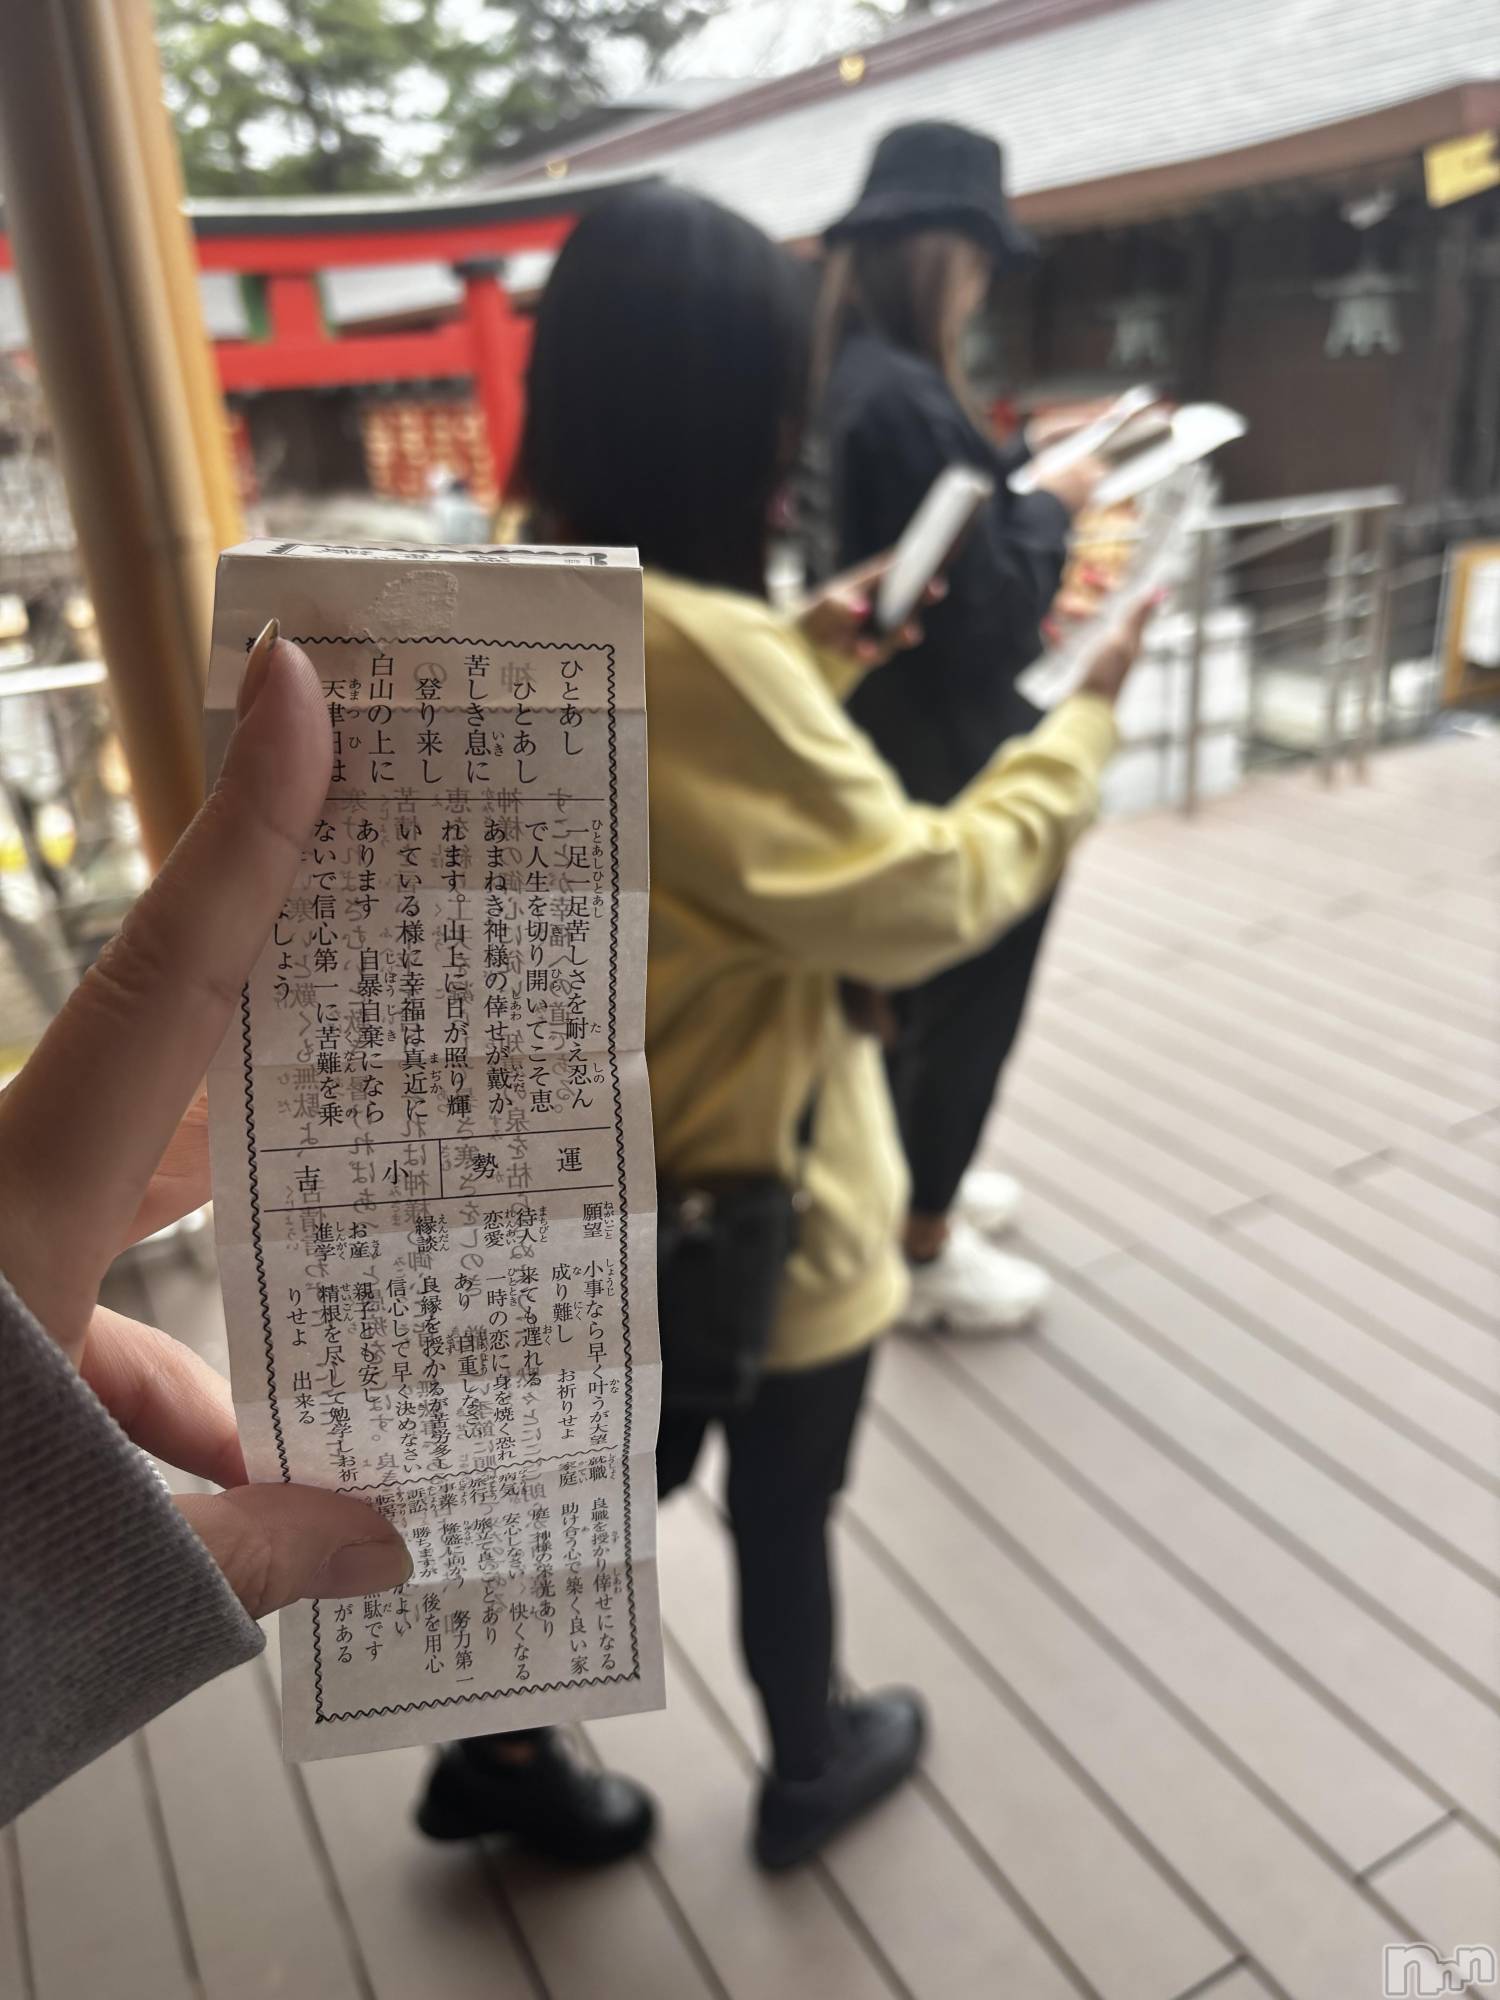 ひとあし
ひとあし
苦しき息に
登り来し
白山の上に
天津日は
一足一足苦しさを耐え忍ん
で人生を切り開いてこそ恵
あまねき神様の倖せが戴か
れます。山上に日が照り輝
いている様に幸福は真近に
あります 自暴自棄になら
ないで信心第一に苦難を乗
ましょう
運勢 小吉
願望 小事なら早く叶うが大望
成り難し お祈りせよ
待人 来ても遅れる
恋愛 一時の恋に身を焼く恐れ
あり 自重しなさい
縁談 良縁を授かるが苦労多し
信心して早く決めなさい
お産 親子とも安し
進学 精根を尽して勉学しお祈
りせよ 出来る
就職 良職を授かり倖せになる
家庭 助け合う心で築く良い家
庭 神様の栄光あり
病気 安心しなさい 快くなる
旅行 旅立て良いことあり
事業 隆盛に向かう 努力第一
訴訟 勝ちますが 後を用心
がよい
無駄です
がある
nnn